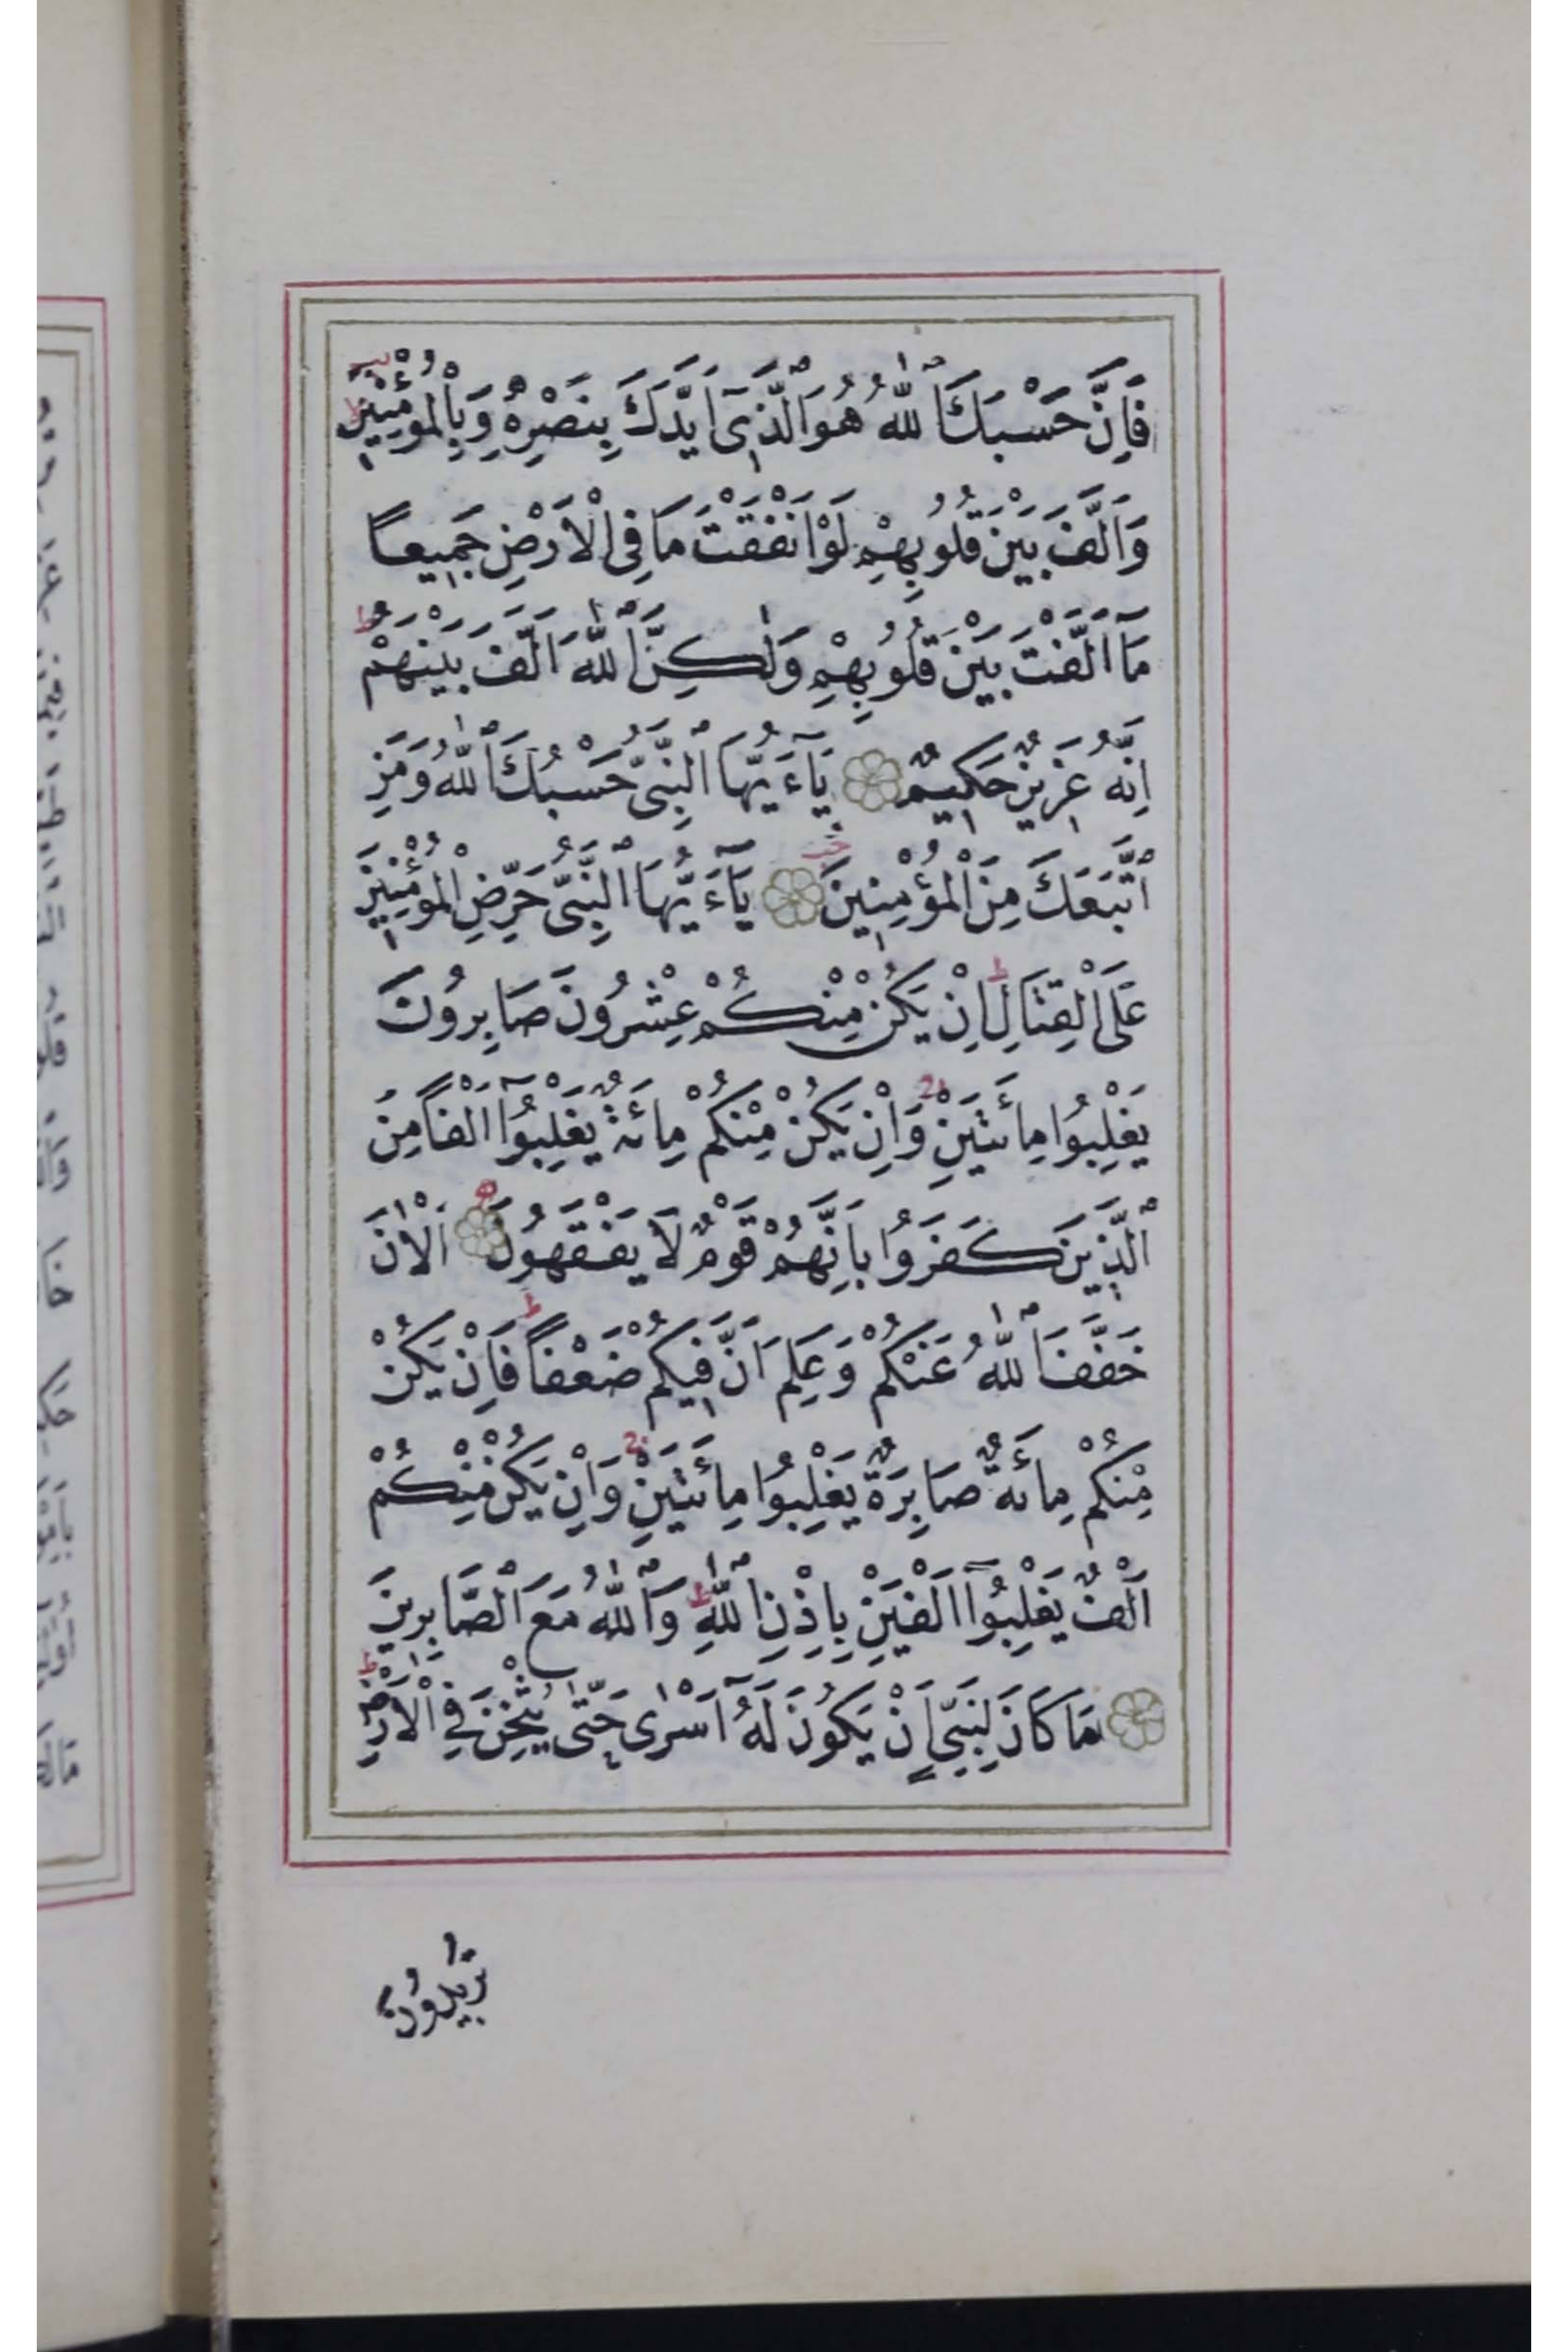 فَاِنَّ حَسْبَكَ ٱللّٰهُ هُوَ ٱلَّذ۪ٓى اَيَّدَكَ بِنَصْرِهِ وَبِالْمُؤْمِن۪ينَ
وَاَلَّفَ بَيْنَ قُلُوبِهِمْ لَوْ اَنْفَقْتَ مَا فِى الْاَرْضِ جَم۪يعاً
مَٓا اَلَّفْتَ بَيْنَ قُلُوبِهِمْ وَلٰكِنَّ ٱللّٰهَ اَلَّفَ بَيْنَهُمْ ط
اِنَّهُ عَز۪يزٌ حَك۪يمٌ يَٓاءَيُّهَا ٱلنَّبِىُّ حَسْبُكَ ٱللّٰهُ وَمَنِ
ٱتَّبَعَكَ مِنَ الْمُؤْمِن۪ينَ يَٓاءَيُّهَا ٱلنَّبِىُّ حَرِّضِ الْمُؤْمِن۪ينَ
عَلَى الْقِتَالِ ط اِنْ يَكُنْ مِنْكُمْ عِشْرُونَ صَابِرُونَ
يَغْلِبُوا مِائَتَيْنِ وَاِنْ يَكُنْ مِنْكُمْ مِائَةٌ يَغْلِبُٓوا اَلْفاً مِنَ
ٱلَّذ۪ينَ كَفَرُوا بِاَنَّهُمْ قَوْمٌ لَا يَفْقَهُونَ اَلْاٰنَ
خَفَّفَ ٱللّٰهُ عَنْكُمْ وَعَلِمَ اَنَّ ف۪يكُمْ ضَعْفاً ط فَاِنْ يَكُنْ
مِنْكُمْ مِائَةٌ صَابِرَةٌ يَغْلِبُوا مِائَتَيْنِ وَاِنْ يَكُنْ مِنْكُمْ
اَلْفٌ يَغْلِبُٓوا اَلْفَيْنِ بِاِذْنِ ٱللّٰهِ ط وَٱللّٰهُ مَعَ ٱلصَّابِرِينَ
مَا كَانَ لِنَبِىٍّ اَنْ يَكُونَ لَهُٓ اَسْرٰى حَتّٰى يُثْخِنَ فِى الْاَرْضِ ط
تُرِيدُونَ